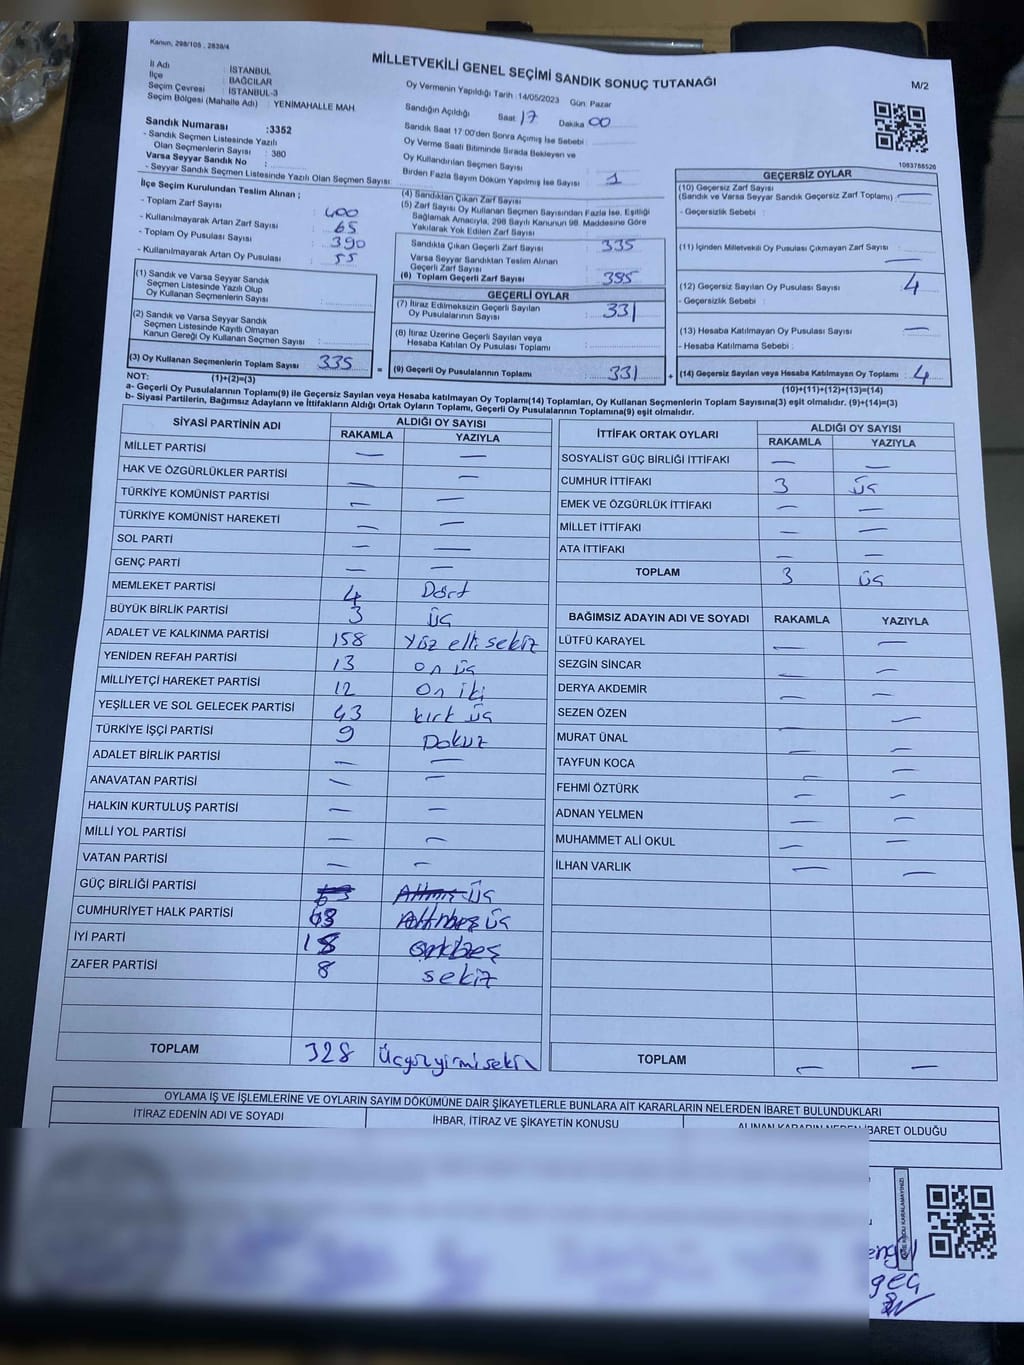 Kanun, 298/105 , 2839/4
MİLLETVEKİLİ GENEL SEÇİMİ SANDIK SONUÇ TUTANAĞI
M/2
İl Adı : İSTANBUL
İlçe : BAĞCILAR
Seçim Çevresi : İSTANBUL-3
Seçim Bölgesi (Mahalle Adı) : YENİMAHALLE MAH
Oy Vermenin Yapıldığı Tarih :14/05/2023 Gün: Pazar
Sandığın Açıldığı Saat 17 Dakika 00
Sandık Saat 17:00'den Sonra Açılmış İse Sebebi :
Oy Verme Saati Bitiminde Sırada Bekleyen ve
Oy Kullandırılan Seçmen Sayısı :
Birden Fazla Sayım Döküm Yapılmış İse Sayısı : 1
1083788526
Sandık Numarası :3352
- Sandık Seçmen Listesinde Yazılı
Olan Seçmenlerin Sayısı : 380
Varsa Seyyar Sandık No :
- Seyyar Sandık Seçmen Listesinde Yazılı Olan Seçmen Sayısı :
İlçe Seçim Kurulundan Teslim Alınan ;
- Toplam Zarf Sayısı : 400
- Kullanılmayarak Artan Zarf Sayısı : 65
- Toplam Oy Pusulası Sayısı : 390
- Kullanılmayarak Artan Oy Pusulası : 55
(1) Sandık ve Varsa Seyyar Sandık
Seçmen Listesinde Yazılı Olup
Oy Kullanan Seçmenlerin Sayısı :
(2) Sandık ve Varsa Seyyar Sandık
Seçmen Listesinde Kayıtlı Olmayan
Kanun Gereği Oy Kullanan Seçmen Sayısı :
(3) Oy Kullanan Seçmenlerin Toplam Sayısı : 335
(1)+(2)=(3)
(4) Sandıktan Çıkan Zarf Sayısı :
(5) Zarf Sayısı Oy Kullanan Seçmen Sayısından Fazla İse, Eşitliği
Sağlamak Amacıyla, 298 Sayılı Kanunun 98. Maddesine Göre
Yakılarak Yok Edilen Zarf Sayısı
Sandıkta Çıkan Geçerli Zarf Sayısı : 335
Varsa Seyyar Sandıktan Teslim Alınan
Geçerli Zarf Sayısı
(6) Toplam Geçerli Zarf Sayısı : 335
GEÇERLİ OYLAR
(7) İtiraz Edilmeksizin Geçerli Sayılan
Oy Pusulalarının Sayısı : 331
(8) İtiraz Üzerine Geçerli Sayılan veya
Hesaba Katılan Oy Pusulası Toplamı :
= (9) Geçerli Oy Pusulalarının Toplamı : 331
GEÇERSİZ OYLAR
(10) Geçersiz Zarf Sayısı
(Sandık ve Varsa Seyyar Sandık Geçersiz Zarf Toplamı) : —
- Geçersizlik Sebebi :
(11) İçinden Milletvekili Oy Pusulası Çıkmayan Zarf Sayısı : —
(12) Geçersiz Sayılan Oy Pusulası Sayısı : 4
- Geçersizlik Sebebi :
(13) Hesaba Katılmayan Oy Pusulası Sayısı : —
- Hesaba Katılmama Sebebi :
+ (14) Geçersiz Sayılan veya Hesaba Katılmayan Oy Toplamı : 4
(10)+(11)+(12)+(13)=(14)
NOT:
a- Geçerli Oy Pusulalarının Toplamı(9) ile Geçersiz Sayılan veya Hesaba katılmayan Oy Toplamı(14) Toplamları, Oy Kullanan Seçmenlerin Toplam Sayısına(3) eşit olmalıdır. (9)+(14)=(3)
b- Siyasi Partilerin, Bağımsız Adayların ve İttifakların Aldığı Ortak Oyların Toplamı, Geçerli Oy Pusulalarının Toplamına(9) eşit olmalıdır.
SİYASİ PARTİNİN ADI ALDIĞI OY SAYISI
RAKAMLA YAZIYLA
MİLLET PARTİSİ — —
HAK VE ÖZGÜRLÜKLER PARTİSİ — —
TÜRKİYE KOMÜNİST PARTİSİ — —
TÜRKİYE KOMÜNİST HAREKETİ — —
SOL PARTİ — —
GENÇ PARTİ — —
MEMLEKET PARTİSİ 4 Dört
BÜYÜK BİRLİK PARTİSİ 3 üç
ADALET VE KALKINMA PARTİSİ 158 Yüz elli sekiz
YENİDEN REFAH PARTİSİ 13 on üç
MİLLİYETÇİ HAREKET PARTİSİ 12 On iki
YEŞİLLER VE SOL GELECEK PARTİSİ 43 kırk üç
TÜRKİYE İŞÇİ PARTİSİ 9 Dokuz
ADALET BİRLİK PARTİSİ — —
ANAVATAN PARTİSİ — —
HALKIN KURTULUŞ PARTİSİ — —
MİLLİ YOL PARTİSİ — —
VATAN PARTİSİ — —
GÜÇ BİRLİĞİ PARTİSİ 63 Altmış üç
CUMHURİYET HALK PARTİSİ üç
İYİ PARTİ
ZAFER PARTİSİ 8 sekiz
TOPLAM 328 Üçyüzyirmisekiz
İTTİFAK ORTAK OYLARI ALDIĞI OY SAYISI
RAKAMLA YAZIYLA
SOSYALİST GÜÇ BİRLİĞİ İTTİFAKI — —
CUMHUR İTTİFAKI 3 üç
EMEK VE ÖZGÜRLÜK İTTİFAKI — —
MİLLET İTTİFAKI — —
ATA İTTİFAKI — —
TOPLAM 3 üç
BAĞIMSIZ ADAYIN ADI VE SOYADI RAKAMLA YAZIYLA
LÜTFÜ KARAYEL — —
SEZGİN SİNCAR — —
DERYA AKDEMİR — —
SEZEN ÖZEN —
MURAT ÜNAL — —
TAYFUN KOCA — —
FEHMİ ÖZTÜRK — —
ADNAN YELMEN — —
MUHAMMET ALİ OKUL — —
İLHAN VARLIK — —
TOPLAM — —
OYLAMA İŞ VE İŞLEMLERİNE VE OYLARIN SAYIM DÖKÜMÜNE DAİR ŞİKAYETLERLE BUNLARA AİT KARARLARIN NELERDEN İBARET BULUNDUKLARI
İTİRAZ EDENİN ADI VE SOYADI İHBAR, İTİRAZ VE ŞİKAYETİN KONUSU ALINAN KARARIN NEDEN İBARET OLDUĞU